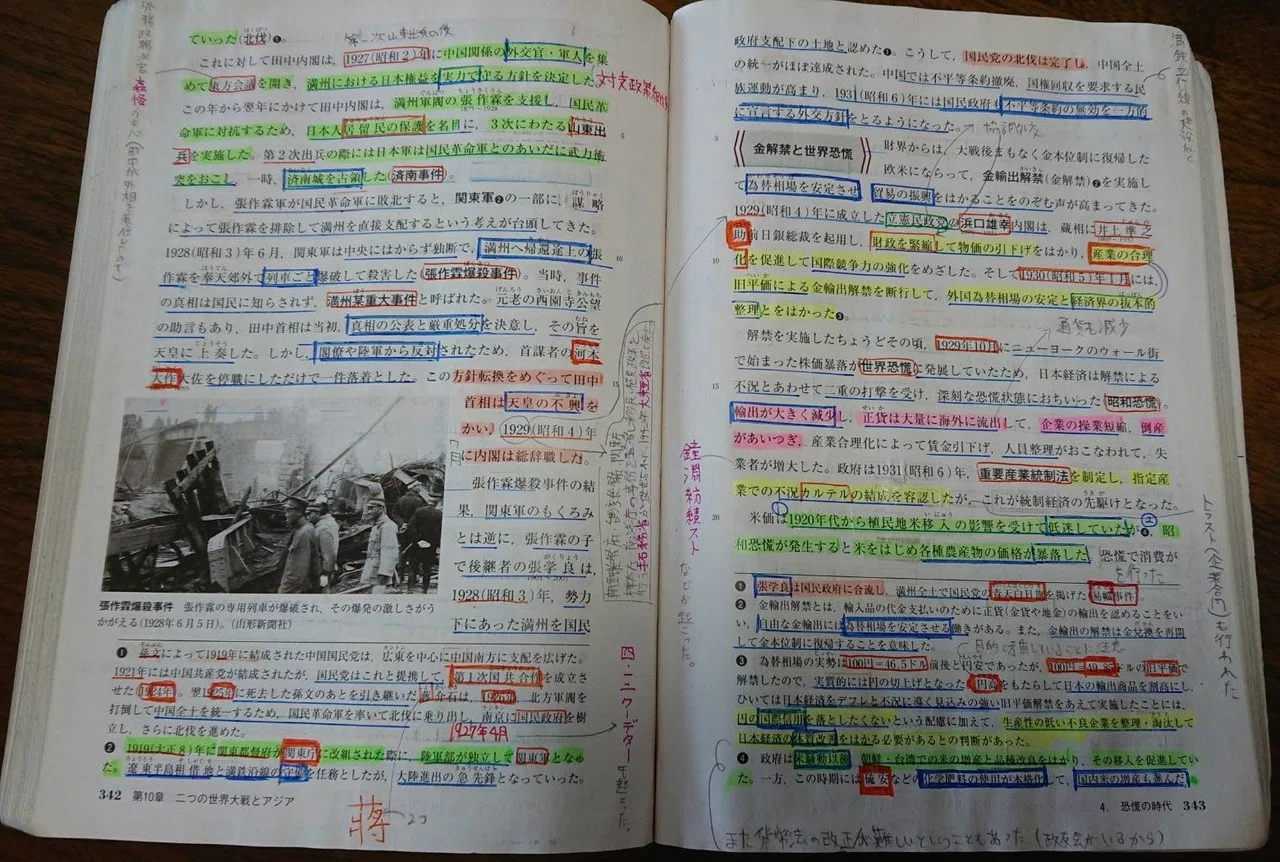 ていった(北伐)❶。
これに対して田中内閣は，1927(昭和2)年に中国関係の外交官・軍人を集
めて東方会議を開き，満州における日本権益を実力で守る方針を決定した。
この年から翌年にかけて田中内閣は，満州軍閥の張作霖を支援し，国民革
命軍に対抗するため，日本人居留民の保護を名目に，3次にわたる山東出
兵を実施した。第2次出兵の際には日本軍は国民革命軍とのあいだに武力衝
突をおこし，一時，済南城を占領した(済南事件)。
しかし，張作霖軍が国民革命軍に敗北すると，関東軍❷の一部に，謀略
によって張作霖を排除して満州を直接支配するという考えが台頭してきた。
1928(昭和3)年6月，関東軍は中央にはからず独断で，満州へ帰還途上の張
作霖を奉天郊外で列車ごと爆破して殺害した(張作霖爆殺事件)。当時，事件
の真相は国民に知らされず，満州某重大事件と呼ばれた。元老の西園寺公望
の助言もあり，田中首相は当初，真相の公表と厳重処分を決意し，その旨を
天皇に上奏した。しかし，閣僚や陸軍から反対されたため，首謀者の河本
大作大佐を停職にしただけで一件落着とした。この方針転換をめぐって田中
首相は天皇の不興を
かい，1929(昭和4)年
に内閣は総辞職した。
張作霖爆殺事件の結
果，関東軍のもくろみ
とは逆に，張作霖の子
で後継者の張学良は，
1928(昭和3)年，勢力
下にあった満州を国民
張作霖爆殺事件 張作霖の専用列車が爆破され，その爆発の激しさがう
かがえる(1928年6月5日)。(山形新聞社)
❶ 孫文によって1919年に結成された中国国民党は，広東を中心に中国南方に支配を広げた。
1921年には中国共産党が結成されたが，国民党はこれと提携して，第1次国共合作を成立さ
せた(1924年)。翌1925年に死去した孫文のあとを引き継いだ蔣介石は，1926年，北方軍閥を
打倒して中国全土を統一するため，国民革命軍を率いて北伐に乗り出し，南京に国民政府を樹
立し，さらに北伐を進めた。
1927年4月
❷ 1919(大正8)年に関東都督府が関東庁に改組された際に，陸軍部が独立して関東軍となっ
た。遼東半島租借地と満鉄沿線の守備を任務としたが，大陸進出の急先鋒となっていった。
342 第10章 二つの世界大戦とアジア
蔣
四・一二クーデター
政府支配下の土地と認めた❶。こうして，国民党の北伐は完了し，中国全土
の統一がほぼ達成された。中国では不平等条約撤廃，国権回収を要求する民
族運動が高まり，1931(昭和6)年には国民政府も不平等条約の無効を一方的
に宣言する外交方針をとるようになった。
協調外交
金解禁と世界恐慌
財界からは，大戦後まもなく金本位制に復帰した
欧米にならって，金輸出解禁(金解禁)❷を実施し
て為替相場を安定させ，貿易の振興をはかることをのぞむ声が高まってきた。
1929(昭和4)年に成立した立憲民政党の浜口雄幸内閣は，蔵相に井上準之
助前日銀総裁を起用し，財政を緊縮して物価の引下げをはかり，産業の合理
化を促進して国際競争力の強化をめざした。そして1930(昭和5)年1月には，
旧平価による金輸出解禁を断行して，外国為替相場の安定と経済界の抜本的
整理とをはかった❸。
通貨も減少
解禁を実施したちょうどその頃，1929年10月にニューヨークのウォール街
で始まった株価暴落が世界恐慌に発展していたため，日本経済は解禁による
不況とあわせて二重の打撃を受け，深刻な恐慌状態におちいった(昭和恐慌)。
輸出が大きく減少し，正貨は大量に海外に流出して，企業の操業短縮，倒産
があいつぎ，産業合理化によって賃金引下げ，人員整理がおこなわれて，失
業者が増大した。政府は1931(昭和6)年，重要産業統制法を制定し，指定産
業での不況カルテルの結成を容認したが，これが統制経済の先駆けとなった。
米価は1920年代から植民地米移入の影響を受けて低迷していたが❹，昭
和恐慌が発生すると米をはじめ各種農産物の価格が暴落した。恐慌で消費が
鐘淵紡績ストなどが起こった。
トラスト(企業合同)も行われた
❶ 張学良は国民政府に合流し，満州全土で国民党の青天白日旗を掲げた(易幟事件)
❷ 金輸出解禁とは，輸入品の代金支払いのために正貨(金貨や地金)の輸出を認めることをい
い，自由な金輸出には為替相場を安定させる働きがある。また，金輸出の解禁は金兌換を再開
して金本位制に復帰することを意味した。
❸ 為替相場の実勢は100円=46.5ドル前後と円安であったが，100円=49.85ドルの旧平価で
解禁したので，実質的には円の切上げとなった。円高をもたらして日本の輸出商品を割高にし，
ひいては日本経済をデフレと不況に導く見込みの強い旧平価解禁をあえて実施したことには，
円の国際信用を落としたくないという配慮に加えて，生産性の低い不良企業を整理・淘汰して
日本経済の体質改善をはかる必要があるとの判断があった。
❹ 政府は米騒動以後，朝鮮・台湾での米の増産と品種改良をはかり，その移入を促進してい
た。一方，この時期には硫安などの化学肥料の使用が本格化して，国内米の増産も進んだ。
4. 恐慌の時代 343
また貨幣法の改正が難しいということもあった(政友会がいるから)